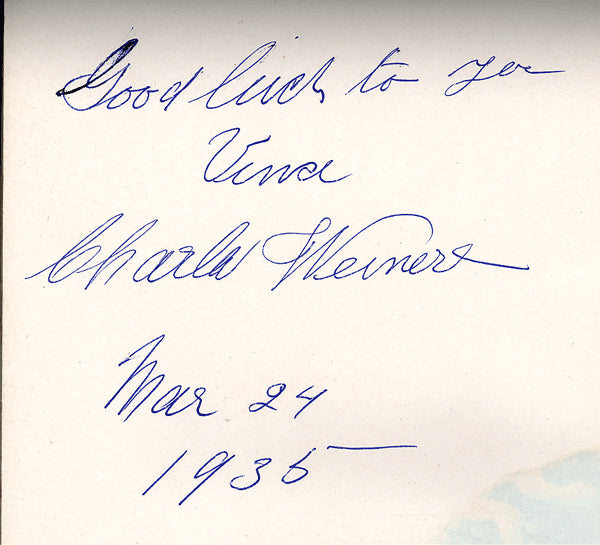 Good luck to you
Vince
Charles Weinert
Mar 24
1935